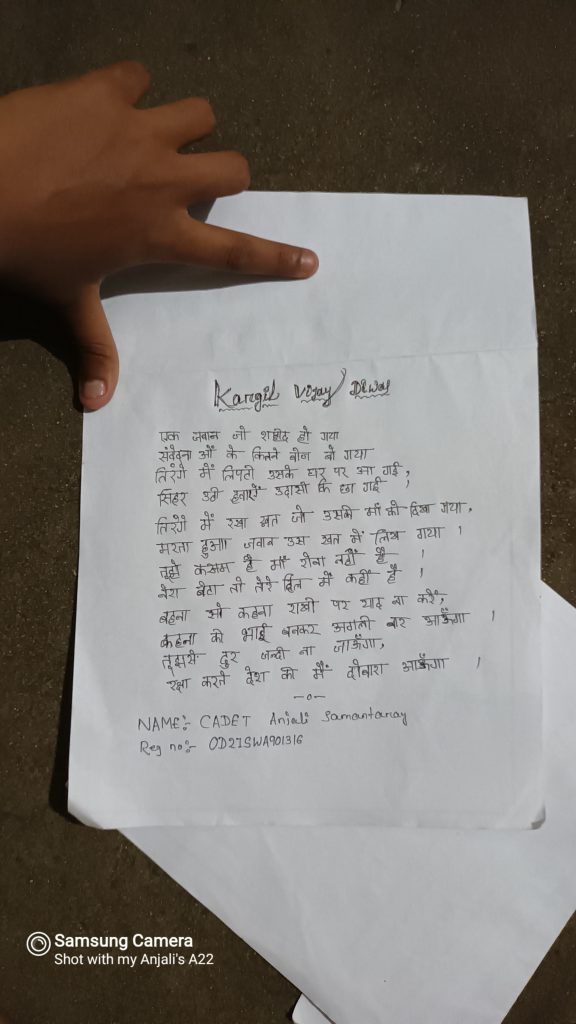 Kargil Vijay Diwas
एक जवान जो शहीद हो गया
संवेदना ओं के कितने बीज बो गया
तिरंगे में लिपटी उसके घर पर आ गई,
सिहर उठी हवाऐं उदासी कि छा गई ।
तिरंगे में रखा खत जो उसकी माँ को दिखा गया,
मरता हुआ जवान उस खत में लिख गया ।
तुझे कसम है माँ रोना नहीं है ।
तेरा बेटा तो तेरे दिल में कहीं है ।
बहना से कहना राखी पर याद ना करें,
कहना की भाई बनकर अगली बार आऊँगा ।
तुझसे दुर जल्दी ना जाऊँगा,
रक्षा करने देश की मैं दोबारा आऊँगा ।
—o—
NAME:- CADET Anjali Samantaray
Reg no:- OD21SWA901316
Samsung Camera
Shot with my Anjali's A22